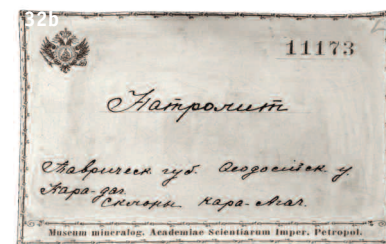 32b
11173
Натролит
Таврическ. губ. Феодосійск. у.
Кара-даг
Склоны Кара-Агач.
Museum mineralog. Academiae Scientiarum Imper. Petropol.